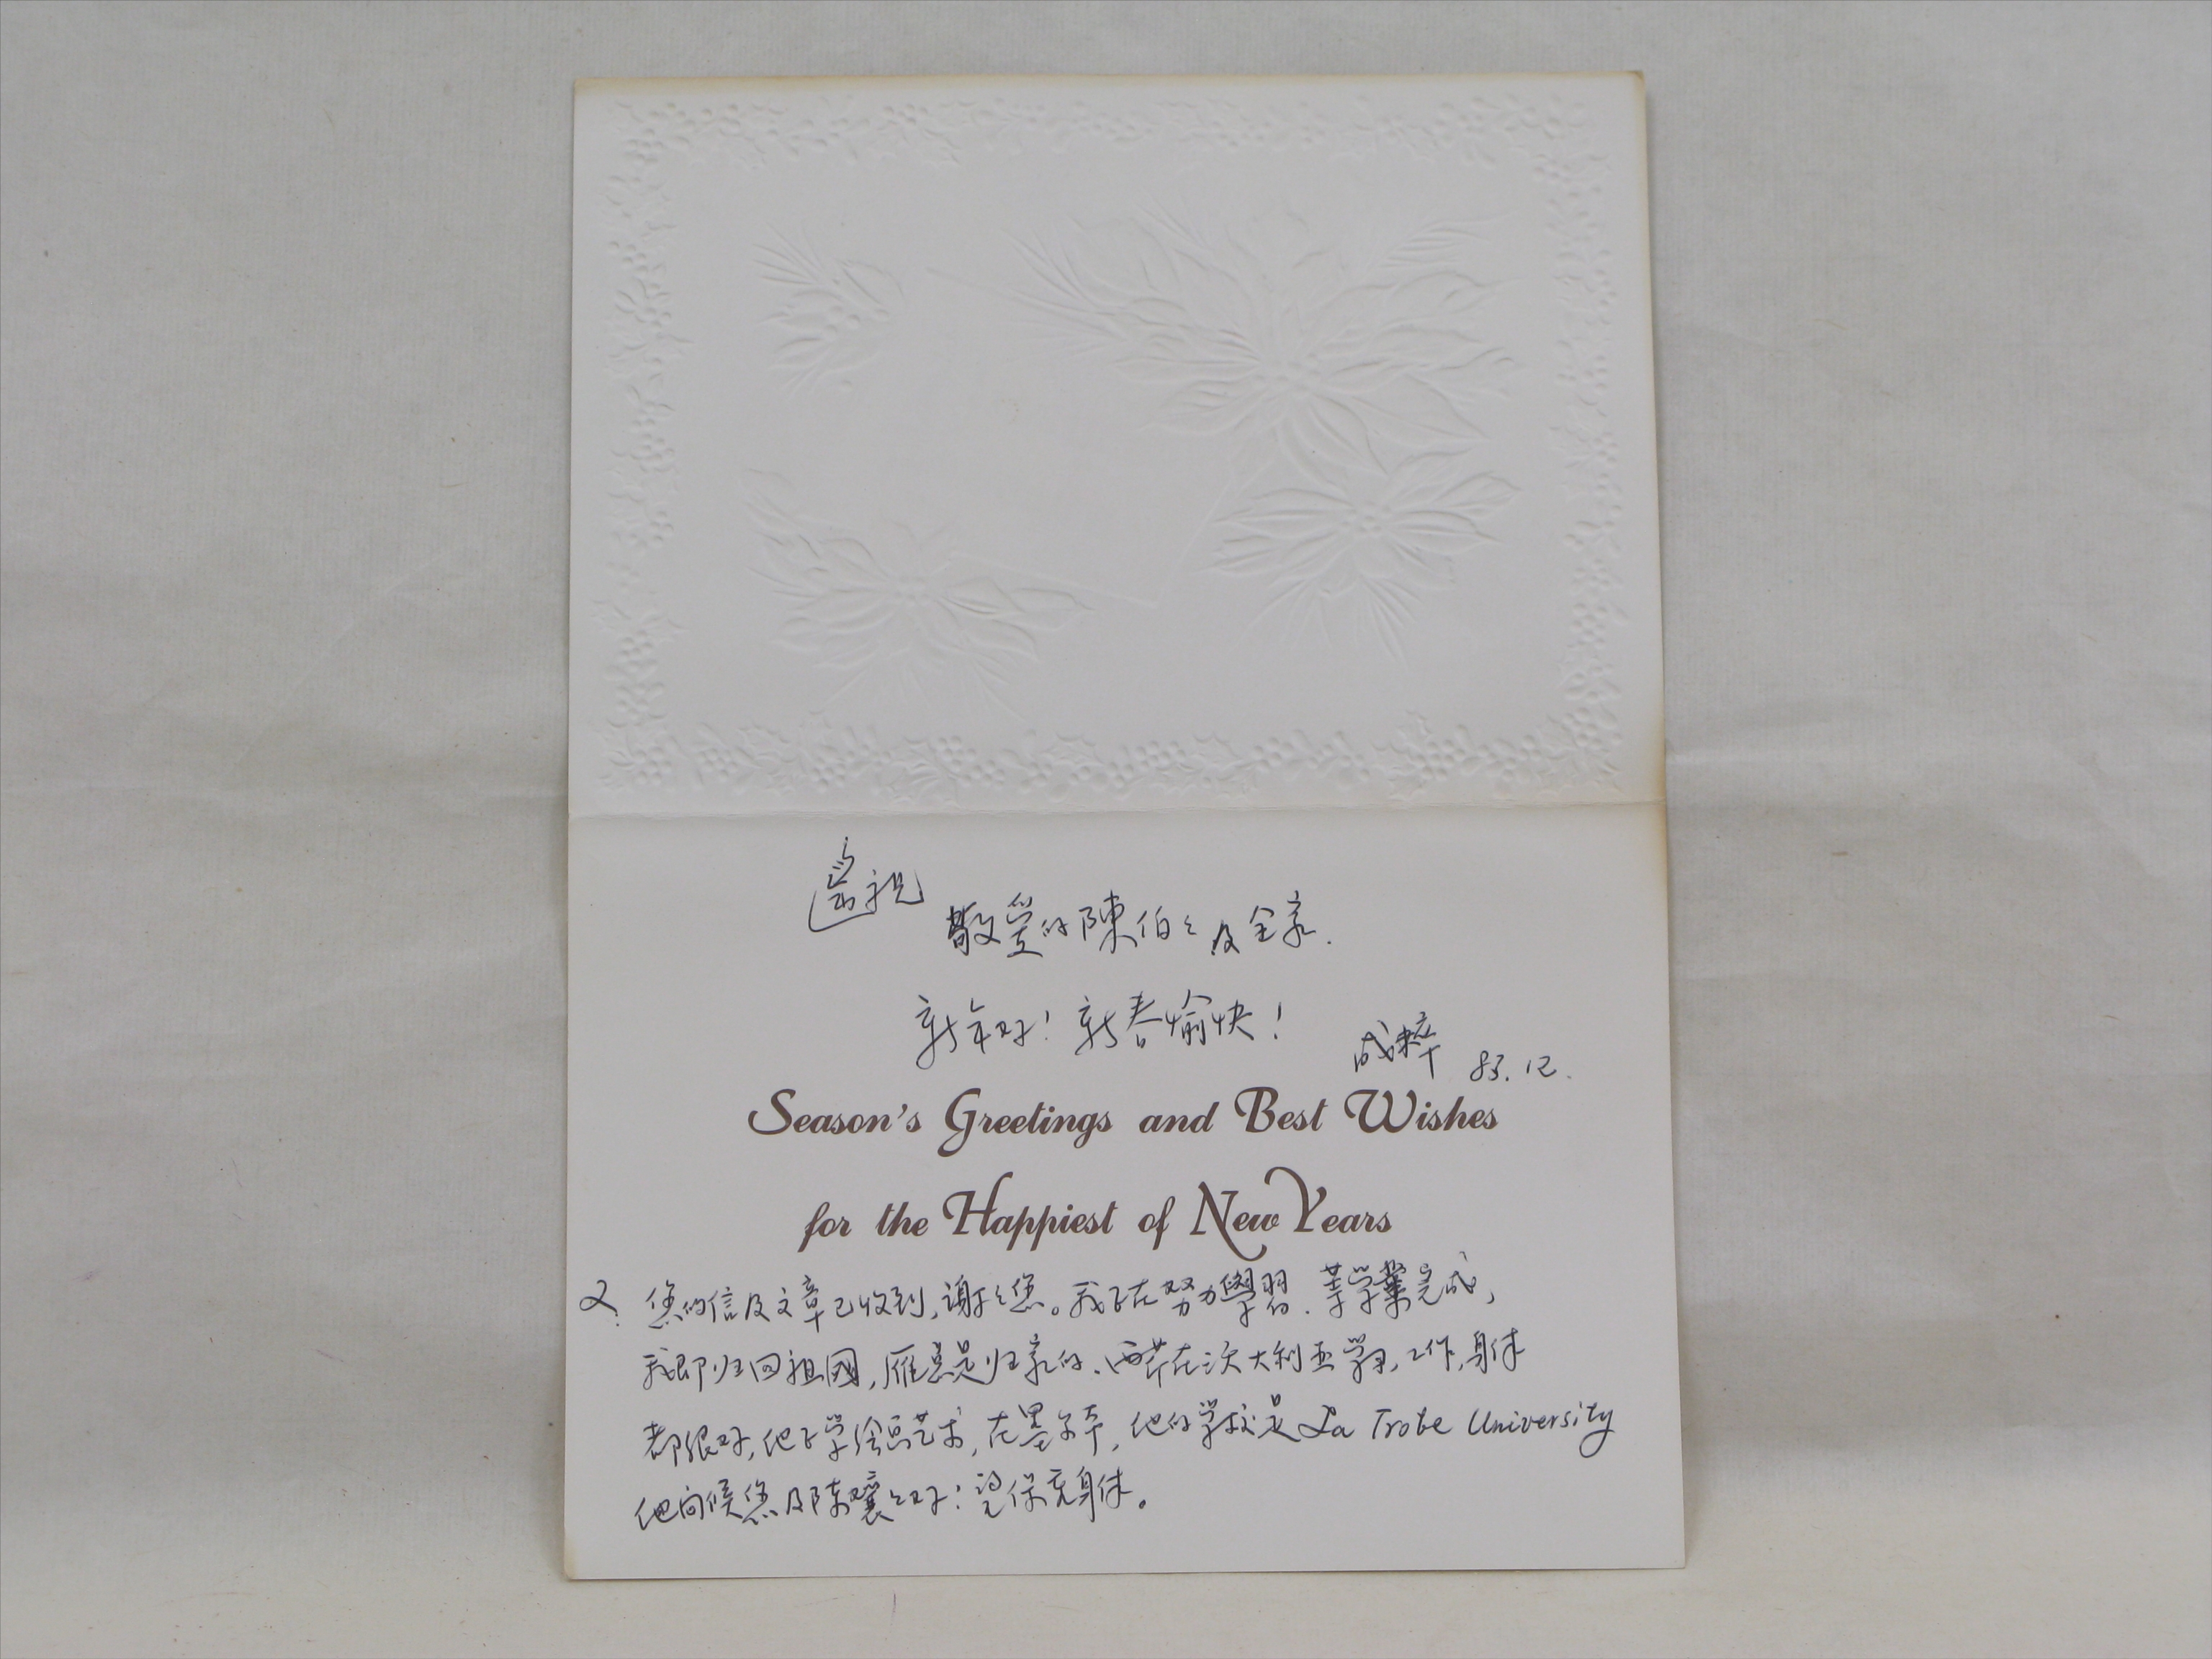 遥祝
敬爱的陳伯々及全家.
新年好！新春愉快！
成粹 83.12.
Season's Greetings and Best Wishes
for the Happiest of New Years
又: 您的信及文章已收到,謝々您。我正在努力學習.等学業完成,
我即归回祖國,雁总是归家的.西芹在沃大利亚学习,工作,身体
都很好,他正学绘画艺术,在墨尔本,他的学校是 La Trobe University
他向候您及陈孃々好！望保重身体。